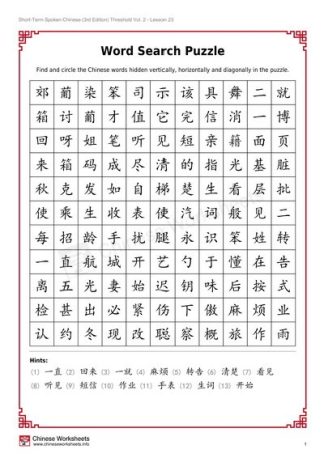 Short-Term Spoken Chinese (3rd Edition) Threshold Vol. 2 - Lesson 23
Word Search Puzzle
Find and circle the Chinese words hidden vertically, horizontally and diagonally in the puzzle.
郊 葡 染 笨 司 示 该 具 舞 二 就
箱 讨 葡 才 值 它 完 信 消 一 博
回 呀 姐 笔 听 见 短 亲 籍 面 页
来 箱 码 成 尽 清 的 指 光 基 脏
秋 克 发 如 自 梯 楚 生 看 层 批
使 乘 生 收 表 使 汽 词 般 见 二
每 招 龄 手 扰 腿 永 识 笨 姓 转
一 直 航 城 开 艺 勺 于 懂 在 告
离 五 光 妻 始 迟 钥 味 后 按 式
检 甚 出 必 紧 伤 下 傲 麻 烦 业
认 约 冬 现 改 聪 察 概 旅 作 雨
Hints:
(1) 一直 (2) 回来 (3) 一就 (4) 麻烦 (5) 转告 (6) 清楚 (7) 看见
(8) 听见 (9) 短信 (10) 作业 (11) 手表 (12) 生词 (13) 开始
Chinese Worksheets
www.chineseworksheets.info
1